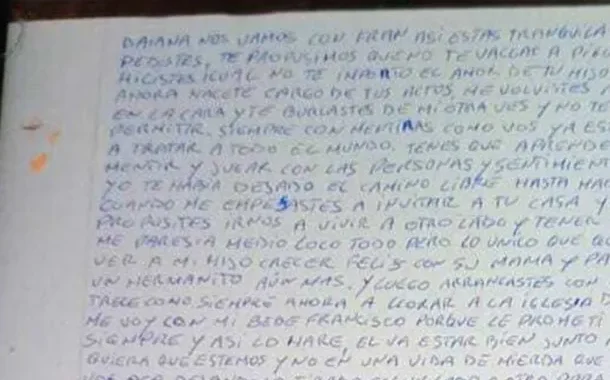 DAIANA NOS VAMOS CON FRAN ASI ESTAS TRANQUILA
PEDISTES, TE PROPUSIMOS QUE NO TE VALLAS A
HICISTES IGUAL NO TE IMPORTO EL AMOR DE TU HIJO
AHORA HACETE CARGO DE TUS ACTOS, ME VOLVISTES A
EN LA CARA Y TE BURLASTES DE MI OTRA VES Y NO TE
PERMITIR, SIEMPRE CON MENTIRAS COMO VOS YA ES
A TRATAR A TODO EL MUNDO. TENES QUE APRENDE
MENTIR Y JUGAR CON LAS PERSONAS Y SENTIMIEN
YO TE HABIA DEJADO EL CAMINO LIBRE HASTA
CUANDO ME EMPESASTES A INVITAR A TU CASA Y
PROPOSITES IRNOS A VIVIR A OTRO LADO Y TENER
ME PARESIA MEDIO LOCO TODO PERO LO UNICO QUE
VER A MI HIJO CRECER FELIS CON SU MAMA Y PA
UN HERMANITO AÚN MAS. Y LUEGO ARRANCASTES CON
COMO SIEMPRE AHORA A LLORAR A LA IGLESIA
ME VOY CON MI BEBE FRANCISCO PORQUE LE PROMETI
SIEMPRE Y ASI LO HARE, EL VA ESTAR BIEN JUNTO A
QUIERA QUE ESTEMOS Y NO EN UNA VIDA DE MIERDA QUE